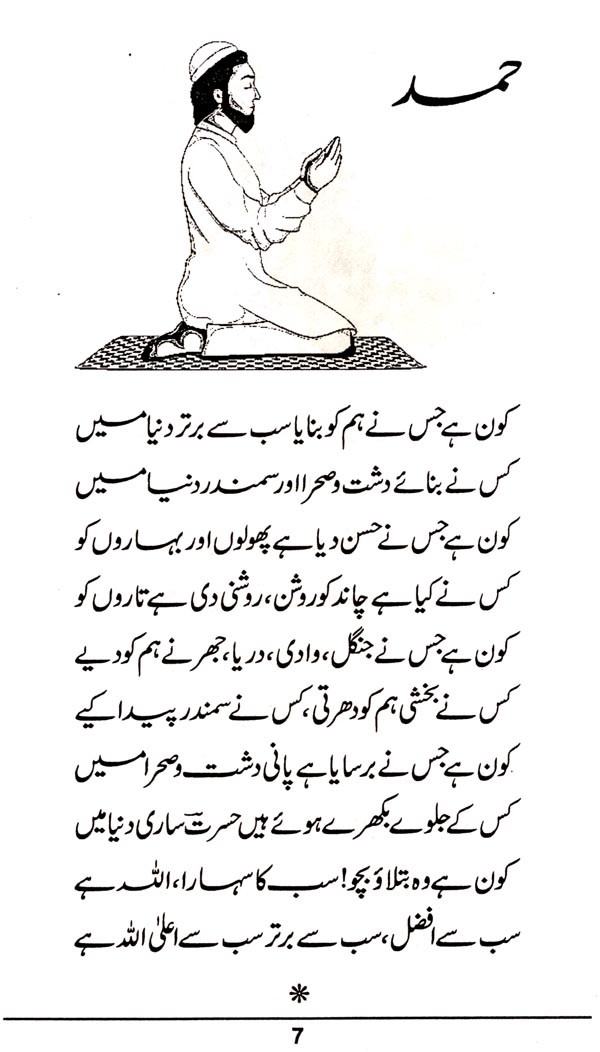 حمد
کون ہے جس نے ہم کو بنایا سب سے برتر دنیا میں
کس نے بنائے دشت و صحرا اور سمندر دنیا میں
کون ہے جس نے حسن دیا ہے پھولوں اور بہاروں کو
کس نے کیا ہے چاند کو روشن، روشنی دی ہے تاروں کو
کون ہے جس نے جنگل، وادی، دریا، جھرنے ہم کو دیے
کس نے بخشی ہم کو دھرتی، کس نے سمندر پیدا کیے
کون ہے جس نے برسایا ہے پانی دشت و صحرا میں
کس کے جلوے بکھرے ہوئے ہیں حسرتؔ ساری دنیا میں
کون ہے وہ بتلاؤ بچو! سب کا سہارا، اللہ ہے
سب سے افضل، سب سے برتر سب سے اعلیٰ اللہ ہے
7